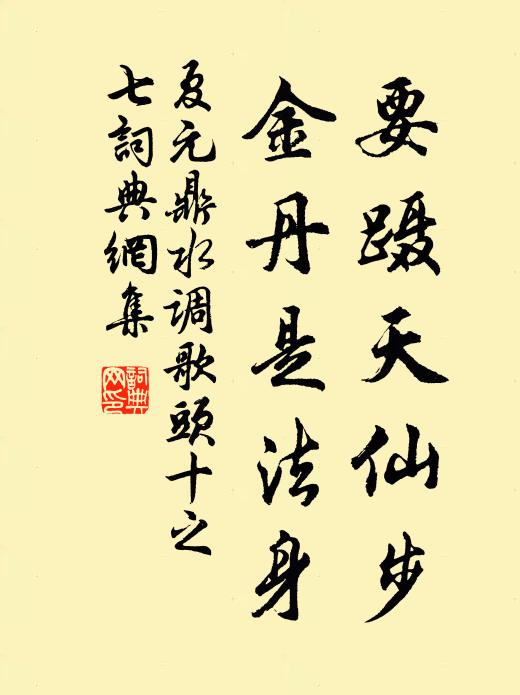 要蹑天仙步
金丹是法身
夏元鼎水调歌头十之
七词典网集
詞典
网印